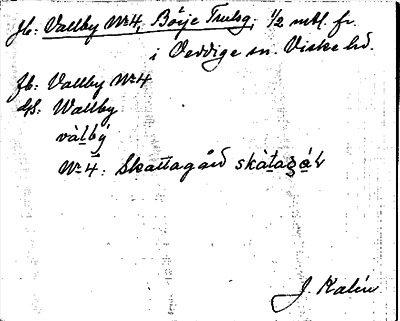 Jb: Vallby No 4, Börje Trulsg; 1/2 mtl. fr.
i Veddige sn. Viske hd.
Jb: Vallby No 4
GS: Wallby
vàlbý
No 4: Skattagård skàtagáɽ
J. Kalén